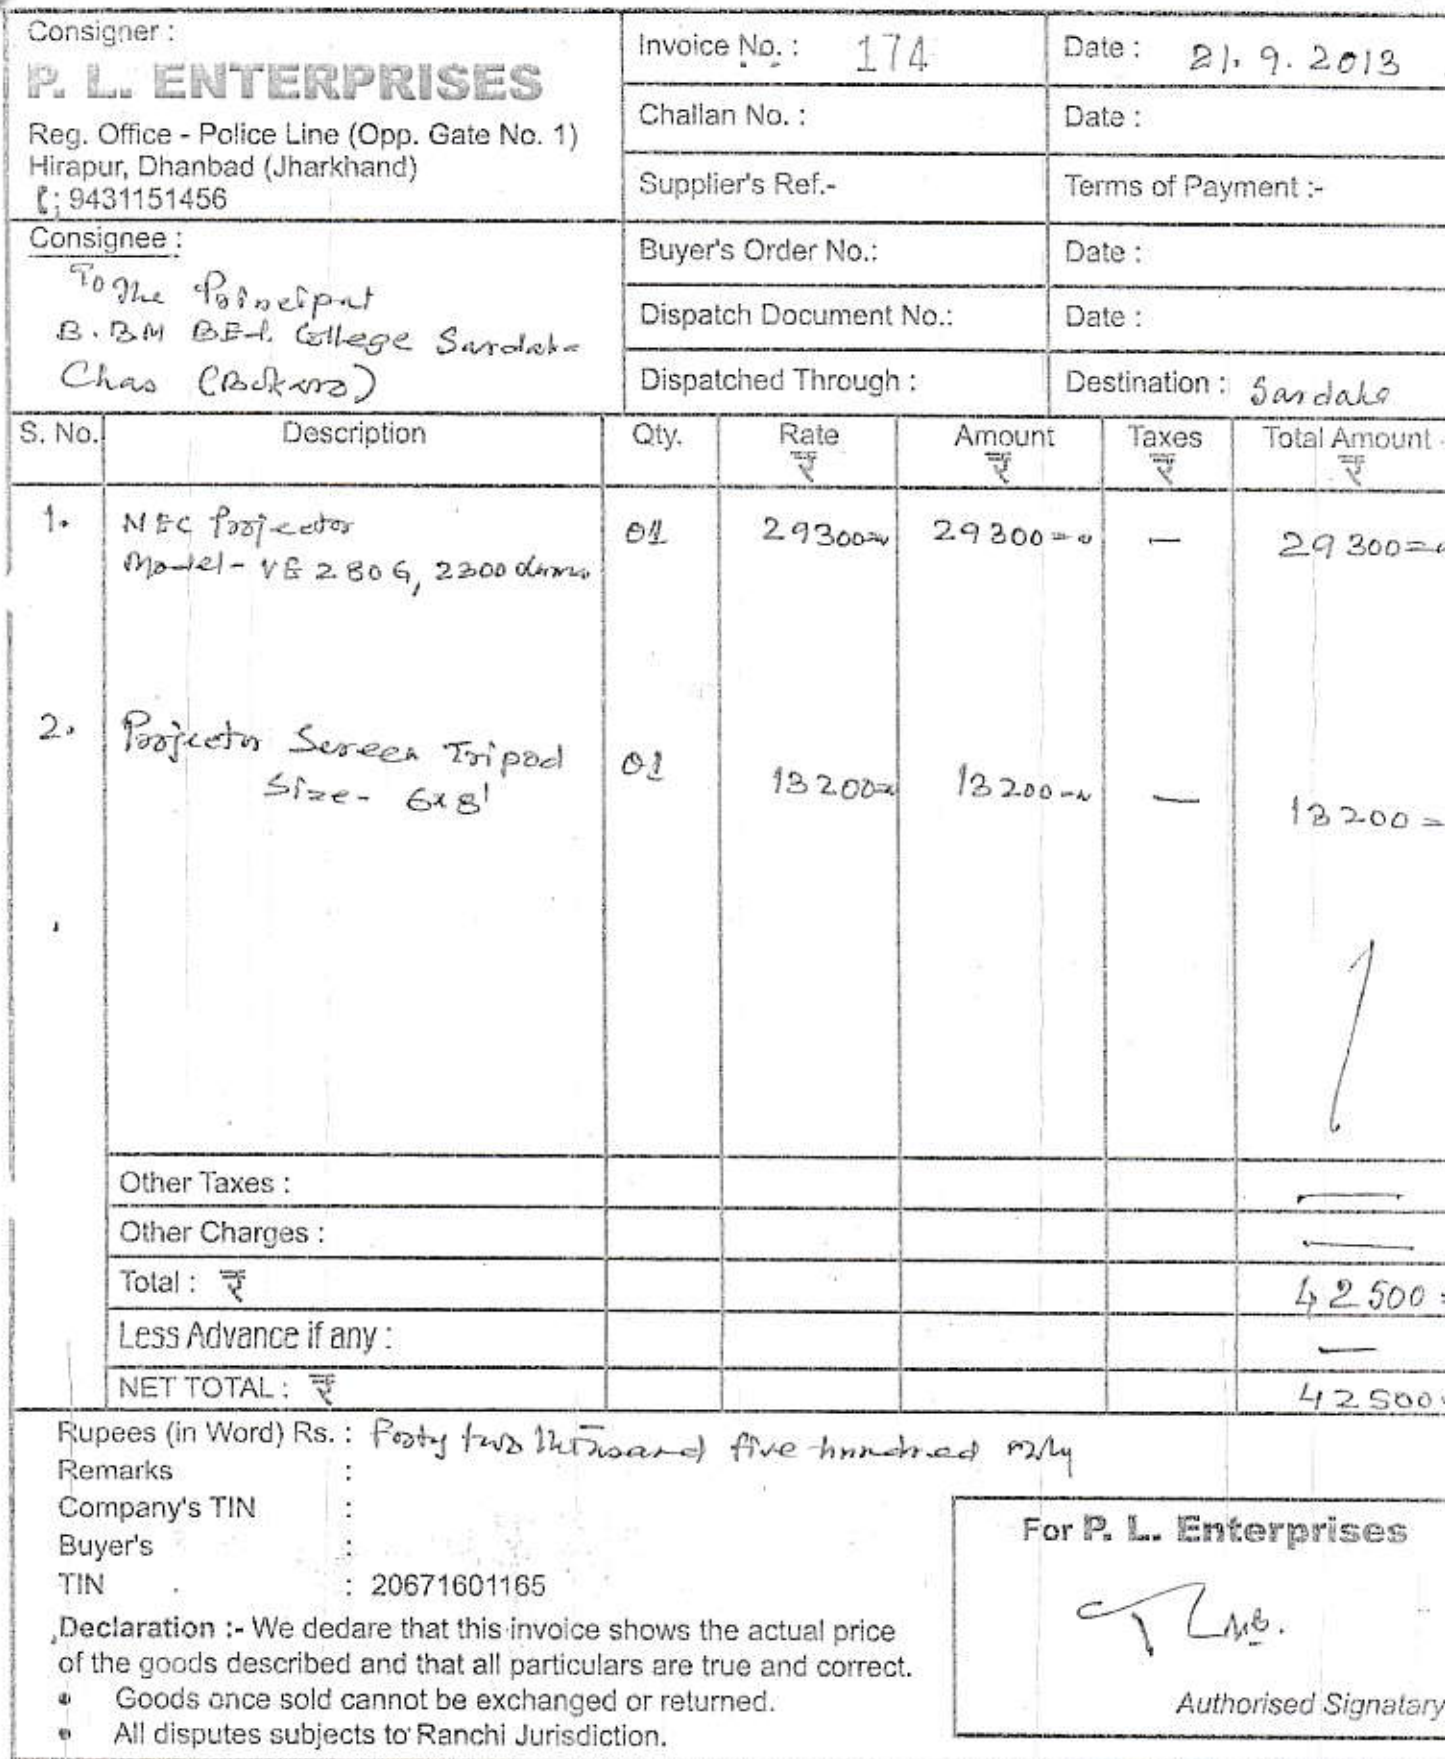 Consigner :
P. L. ENTERPRISES
Reg. Office - Police Line (Opp. Gate No. 1)
Hirapur, Dhanbad (Jharkhand)
: 9431151456
Invoice No. : 174
Date : 21.9.2013
Challan No. :
Date :
Supplier's Ref.-
Terms of Payment :-
Consignee :
To The Principal
B.BM BEd. College Sardaha
Chas (Bokaro)
Buyer's Order No.:
Date :
Dispatch Document No.:
Date :
Dispatched Through :
Destination : Sardaha
S. No. Description Qty. Rate Amount Taxes Total Amount
₹ ₹ ₹ ₹
1. NEC Projector 01 29300= 29300= — 29300=
Model- VE 280G, 2300
2. Projector Screen Tripod 01 13200= 13200= — 13200=
Size- 6x8'
Other Taxes : —
Other Charges : —
Total : ₹ 42500=
Less Advance if any : —
NET TOTAL : ₹ 42500=
Rupees (in Word) Rs. : Forty two thousand five hundred only
Remarks :
Company's TIN :
Buyer's :
TIN : 20671601165
Declaration :- We dedare that this invoice shows the actual price
of the goods described and that all particulars are true and correct.
• Goods once sold cannot be exchanged or returned.
• All disputes subjects to Ranchi Jurisdiction.
For P. L. Enterprises
Authorised Signatary